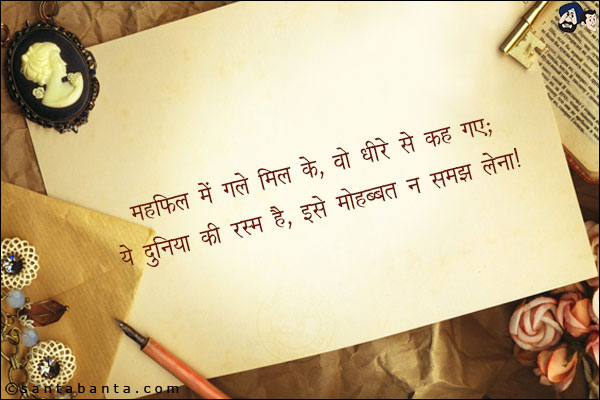 महफिल में गले मिल के, वो धीरे से कह गए;
ये दुनिया की रस्म है, इसे मोहब्बत न समझ लेना!
©santabanta.com